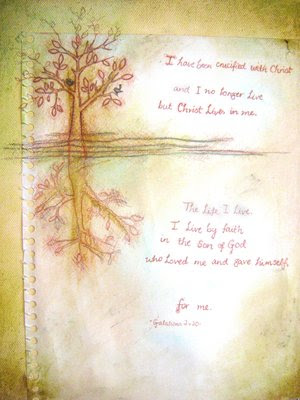 I have been crucified with Christ
and I no longer live
but Christ Lives in me.
The life I live.
I live by faith
in the Son of God
who Loved me and gave himself
for me.
"Galatians 2:20"